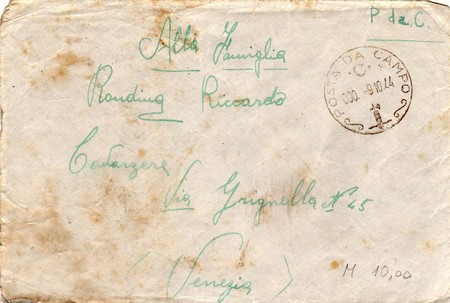 P da C.
Alla Famiglia
POSTA DA CAMPO
C.
000. -9.10.44
Rondina Riccardo
Cavarzere
Via Grignella N° 45
(Venezia)
M 10,00